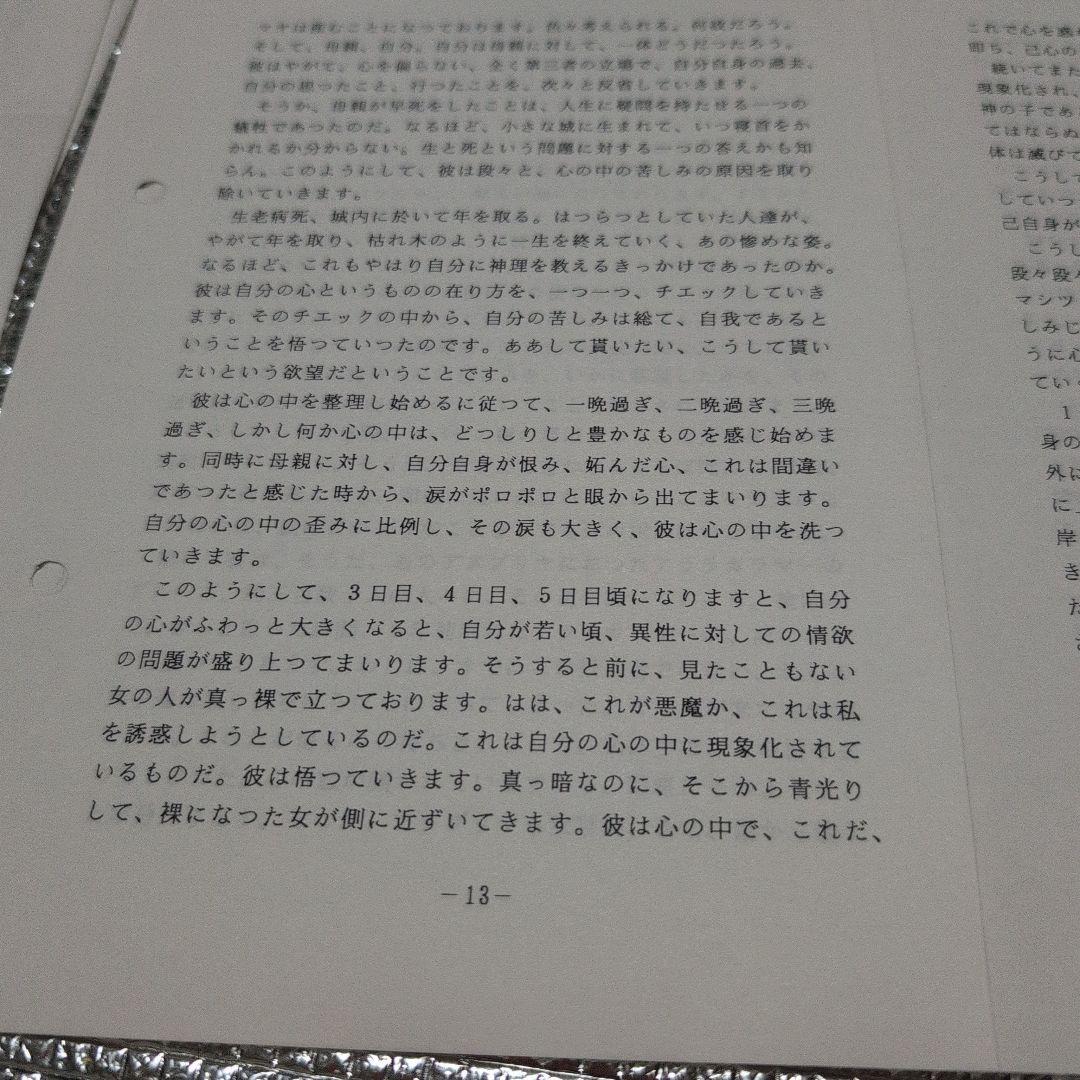 ますことになっております。色々考えられる。何故だろう。
そして、母親、自分。自分は母親に対して、一体どうだったろう。
彼はやがて、心を偏らない、全く第三者の立場で、自分自身の過去、
自分の思ったこと、行ったことを、次々と反省していきます。
そうか、母親が早死をしたことは、人生に疑問を持たせる一つの
犠牲であつたのだ。なるほど、小さな城に生まれて、いつ寝首をか
かれるか分からない。生と死という問題に対する一つの答えかも知
らん。このようにして、彼は段々と、心の中の苦しみの原因を取り
除いていきます。
生老病死、城内に於いて年を取る。はつらつとしていた人達が、
やがて年を取り、枯れ木のように一生を終えていく、あの惨めな姿。
なるほど、これもやはり自分に神理を教えるきっかけであったのか。
彼は自分の心というものの在り方を、一つ一つ、チエックしていき
ます。そのチエックの中から、自分の苦しみは総て、自我であると
いうことを悟つていつたのです。ああして貰いたい、こうして貰い
たいという欲望だということです。
彼は心の中を整理し始めるに従つて、一晩過ぎ、二晩過ぎ、三晩
過ぎ、しかし何か心の中は、どっしりしと豊かなものを感じ始めま
す。同時に母親に対し、自分自身が恨み、妬んだ心、これは間違い
であつたと感じた時から、涙がポロポロと眼から出てまいります。
自分の心の中の歪みに比例し、その涙も大きく、彼は心の中を洗つ
ていきます。
このようにして、3日目、4日目、5日目頃になりますと、自分
の心がふわっと大きくなると、自分が若い頃、異性に対しての情欲
の問題が盛り上つてまいります。そうすると前に、見たこともない
女の人が真っ裸で立つております。はは、これが悪魔か、これは私
を誘惑しようとしているのだ。これは自分の心の中に現象化されて
いるものだ。彼は悟つていきます。真っ暗なのに、そこから青光り
して、裸になった女が側に近ずいてきます。彼は心の中で、これだ、
－13－
これで心を
即ち、己心の
続いてまた
現象化され、
神の子であ
てはならぬ
体は滅びて
こうして
していつ
己自身が
こうし
段々段々
マシツ
しみじ
うに心
てい
1
身の
外に
に
岸
き
た